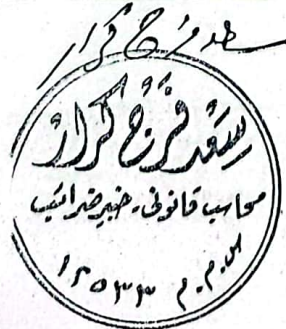 سعد فرج كرار
سعد فرج كرار
محاسب قانونى - خبير ضرائب
س.م.م ١٢٥٣٣